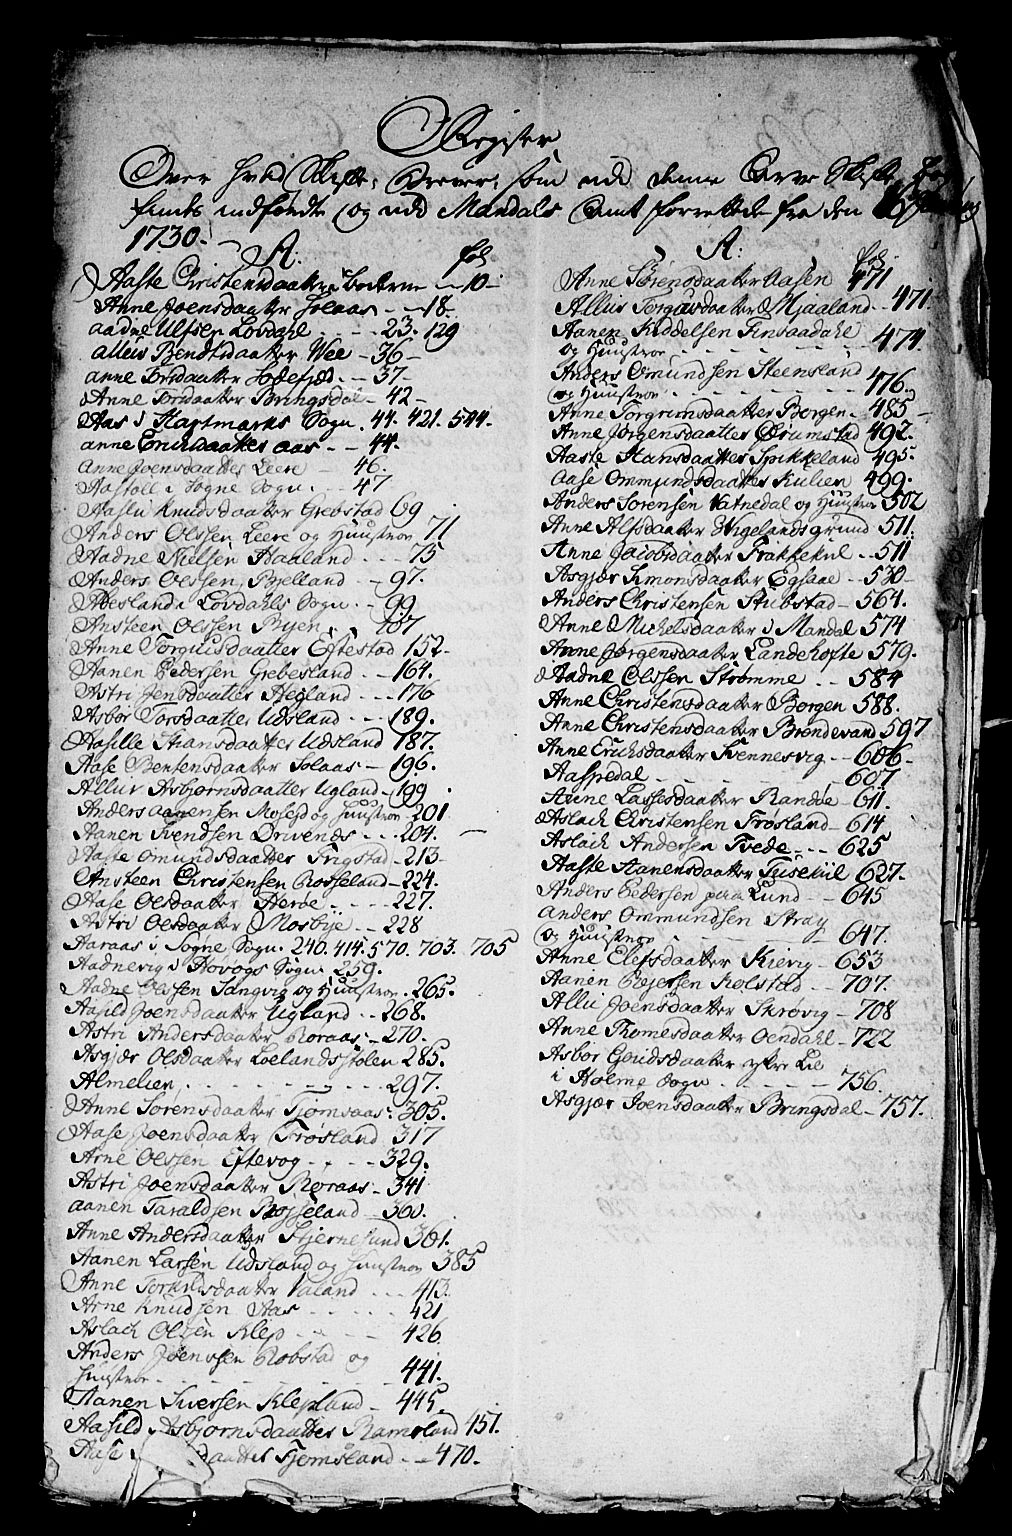 Register
Over hvad Skifte: Brever: som udi denne Arve Skifte
findes indfördt og udi Mandals Amt forrettede fra den 16
1730.
A. fol
Aaste Christensdaatter 10
Anne Joensdaatter Solaas 18
Aadne Ulfsen Lovdahl 23. 129
Alleis Bendtsdaatter Wee 36
Anne Torsdaatter 37
Anne Torsdaatter Bringsdal 42
Aas i Hartmarks Sogn. 44. 421. 544.
Anne aas 44.
Anne Joensdaatter Leere 46.
Aastoll i Sogne Sogn 47
Aaslu Knudsdaatter Grebstad 69
Anders Olssen Leere og Huustrov 71
Aadne Nielsen Haaland 75
Anders Olssen Bielland 97.
Abesland i Lovdahls Sogn 99
Ansteen Olssen Byen 107
Anne Torgiusdaatter Eftestad 152
Aanen Pedersen Grebesland 164.
Astri Jensdaatter Hegland 176
Asbor Torsdaatter Udsland 189.
Aasille Hansdaatter Udsland 187.
Aase Bensensdaatter Solaas 196.
Allur Asbiornsdaatter Ugland 199
Anders Aanensen Mosesd og Huustrov 201
Aanen Svendsen Drivenes 204.
Aaste Omundsdaatter Ingstad 213
Ansteen Christensen Rosseland 224.
Aase Olsdaatter Herve 227.
Astri Olsdaatter Mosbye 228
Aaraas i Sogne Sogn. 240. 414. 570. 703. 705
Aadnevig i Hövogs Sogn 259.
Aadne Olssen Sangvig og Huustrov 265.
Aasild Joensdaatter Ugland 268.
Astri Andersdaatter Roraas 270.
Asgjær Olsdaatter Loelandsstolen 285.
Almelien 297.
Anne Sörensdaatter Tjomsaas 305.
Aase Joensdaatter Trösland 317
Arne Olssen Eftevog 329.
Astri Joensdaatter Röraas 341
Aanen Taraldsen Rosseland 360.
Anne Andersdaatter Hjernesund 361.
Aanen Larsen Udsland og Huustrov 385
Anne Torkildsdaatter Valand 413.
Arne Knudsen Aas 421
Aslach Olssen Klep 426
Anders Joenssen Robstad og
Huustrov 441.
Aanen Iversen Klepland 445.
Aasild Asbjornsdaatter Ramsland 451.
Aase daatter Tjomsland 470.
A: fol
Anne Sörensdaatter Aasen 471
Allus Torgiusdaatter Mjaaland 471.
Aanen Kiddelsen Finsaadahl
og Huustrov 474
Anders Omundsen Steensland
og Huustrov 476.
Anne Torgrimsdaatter Borgen 485
Anne Jörgensdaatter Örumstad 492.
Aaste Hansdaatter Spikkeland 495.
Aase Ommundsdaatter Kulien 499.
Anders Sörensen Vatnedal og Huustrov 502
Anne Alfsdaatter Vigelandsgrund 511.
Anne Jacobsdaatter Trakkekiil 511
Asgjær Simonsdaatter Egsaae 530
Anders Christensen Stubstad 564.
Anne Michelsdaatter i Mandal 574
Anne Jörgensdaatter Landehofte 579.
Aadne Olssen Strömme 584
Anne Christensdaatter Borgen 588.
Anne Christensdaatter Bröndevand 597
Anne Erichsdaatter Svennesvig 606
Aaspedal 607
Anne Lassesdaatter Randöe 611.
Aslach Christensen Frösland 614
Aslach Andersen Tvede 625
Aaste Hanensdaatter Tuisekiil 627.
Anders Pedersen paa Lund 645
Anders Ommundsen Stray
og Huustrov 647.
Anne Elefsdaatter Kievig 653
Aanen Reiersen Kolstad 707.
Allu Joensdaatter Skrövig 708
Anne Thomesdaatter Oendahl 722
Asbor Goudsdaatter öfre Lie
i Holme Sogn 756.
Asgjær Joensdaatter Bringsdal 757.